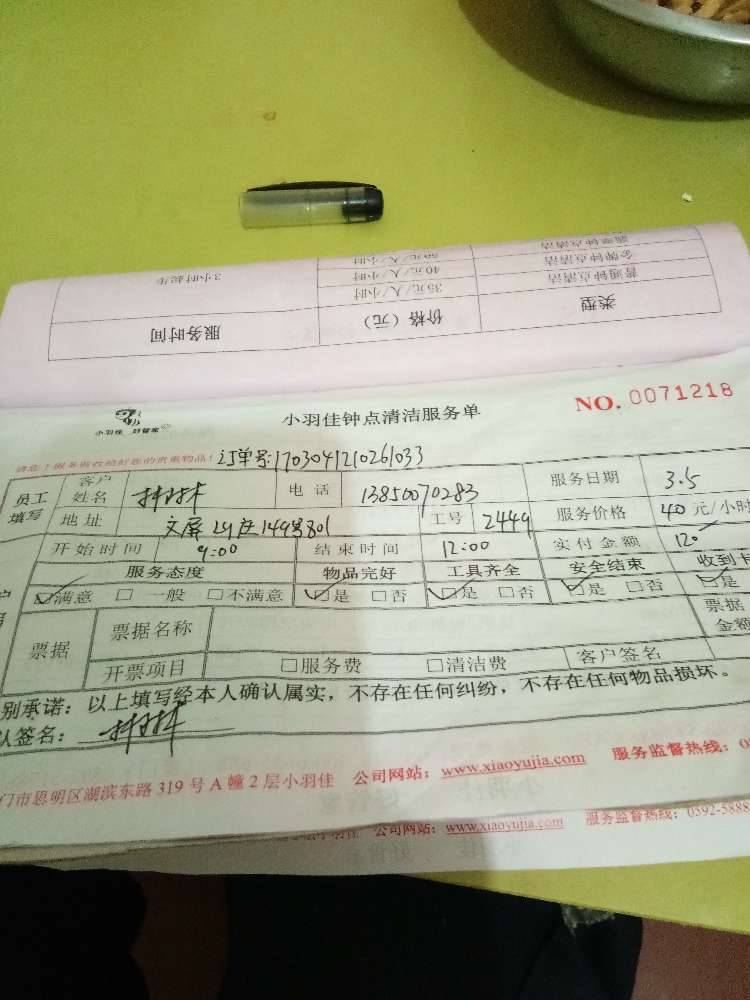 类型 价格（元） 服务时间
普通钟点清洁 35元/人/小时 3小时起步
金牌钟点清洁 40元/人/小时
钟点清洁 50元/人/小时
小羽佳 好管家
小羽佳钟点清洁服务单 NO. 0071218
订单号:1703041210261033
员工填写 客户姓名 林林 电话 13850070283 服务日期 3.5
地址 文屏 149号801 工号 2449 服务价格 40元/小时
开始时间 9:00 结束时间 12:00 实付金额 120
服务态度 物品完好 工具齐全 安全结束 收到卡
☑满意 □一般 □不满意 ☑是 □否 ☑是 □否 ☑是 □否 ☑是
票据 票据名称 票据金额
开票项目 □服务费 □清洁费 客户签名
别承诺：以上填写经本人确认属实，不存在任何纠纷，不存在任何物品损坏。
认签名：林林
门市思明区湖滨东路319号A幢2层小羽佳 公司网站：www.xiaoyujia.com 服务监督热线：0
小羽佳 公司网站：www.xiaoyujia.com 服务监督热线：0592-5888